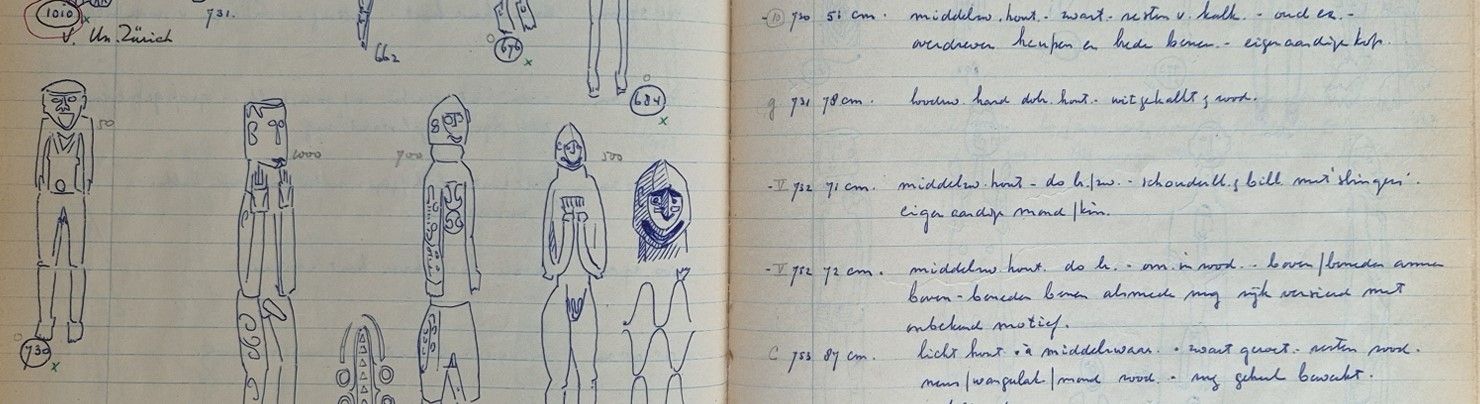 1010
v. Un. Zürich
731.
662
696
684
50
1000
700
500
730
-10 730 51 cm. middelzw. hout. - zwart - resten v. kalk. - oud ex. -
overdreven heupen en benen. - eigenaardige kop.
g 731 78 cm. loodzw. hard hout. - witgekalkt & rood.
-V 732 71 cm. middelzw. hout - do br./zw. - schouderbl. & bill. met 'slingers'.
eigenaardige mond/kin.
-V 752 72 cm. middelzw hout. do br. - om. in rood. - boven/beneden armen
boven-beneden benen alsmede rug rijk versierd met
onbekend motief.
C 753 87 cm. licht hout à middelzwaar. - zwart geroet - resten rood.
neus/mond rood. - rug geheel bewerkt.